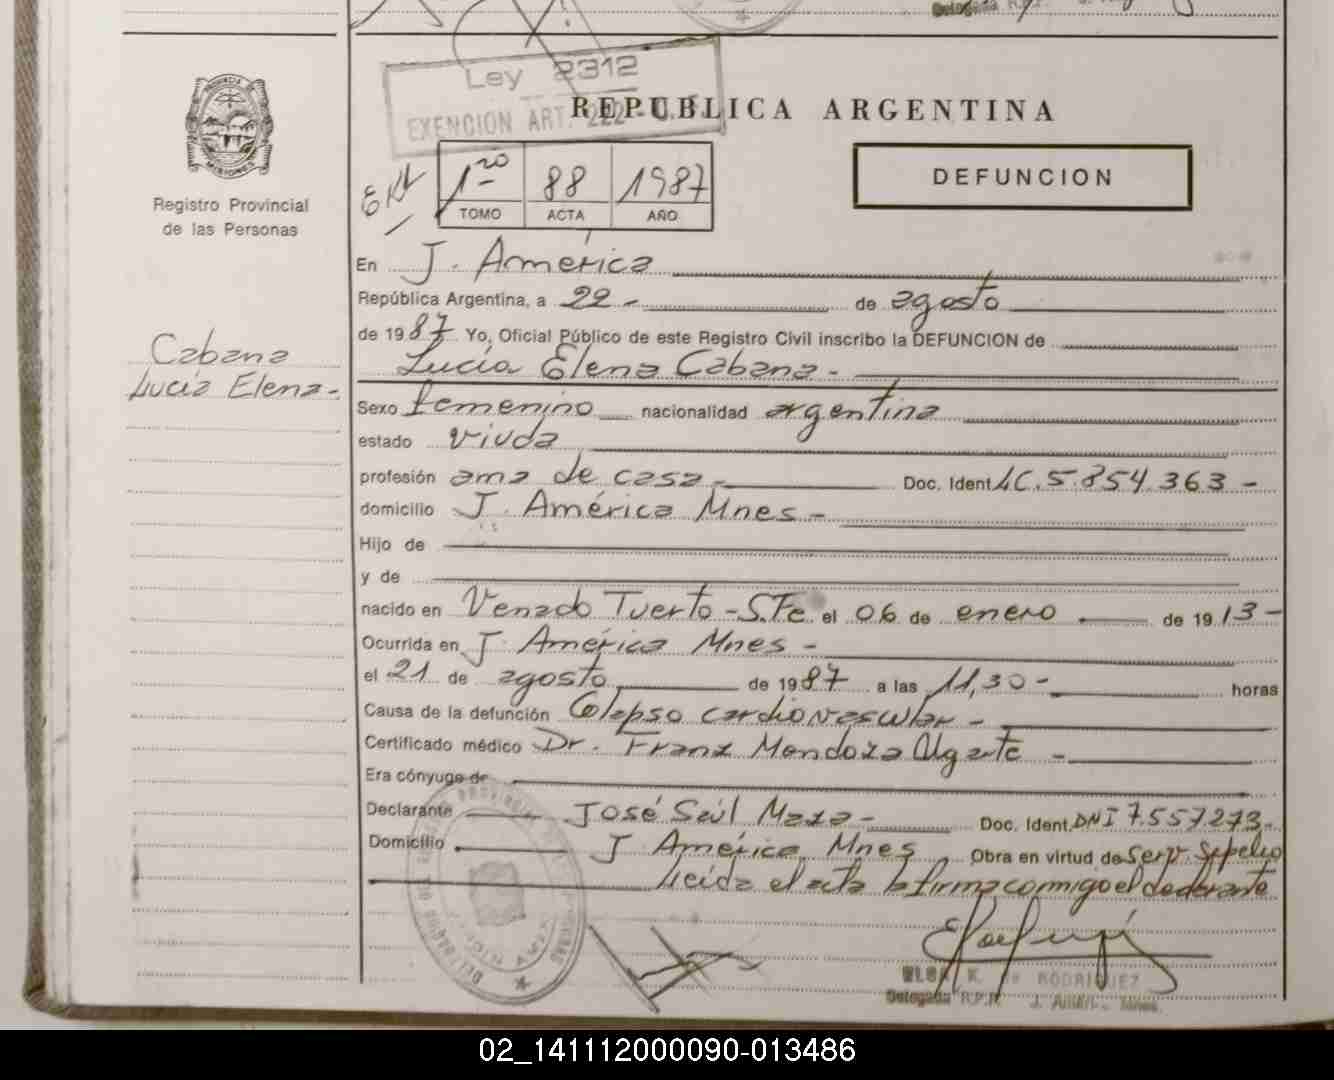 Ley 2312
EXENCION ART. 222 -
REPUBLICA ARGENTINA
PROVINCIA DE
MISIONES
Registro Provincial
de las Personas
1ro 88 1987
TOMO ACTA AÑO
DEFUNCION
En J. América
República Argentina, a 22 - de agosto
de 1987 Yo, Oficial Público de este Registro Civil inscribo la DEFUNCION de
Lucía Elena Cabana -
Cabana
Lucía Elena -
Sexo femenino nacionalidad argentina
estado viuda
profesión ama de casa - Doc. Ident. LC. 5.854.363 -
domicilio J. América Mnes -
Hijo de
y de
nacido en Venado Tuerto - S.Fe el 06 de enero de 1913 -
Ocurrida en J. América Mnes -
el 21 de agosto de 1987 a las 11,30 - horas
Causa de la defunción Colapso cardiovascular -
Certificado médico Dr. Franz Mendoza Ugarte -
Era cónyuge de
Declarante José Saúl Maza - Doc. Ident. DNI 7.557.273 -
Domicilio J América Mnes Obra en virtud de Serv. Sepelio
Leída el acta la firma conmigo el declarante
K. de RODRIGUEZ
Delegada R.P.P. J. América - Mnes.
02_141112000090-013486